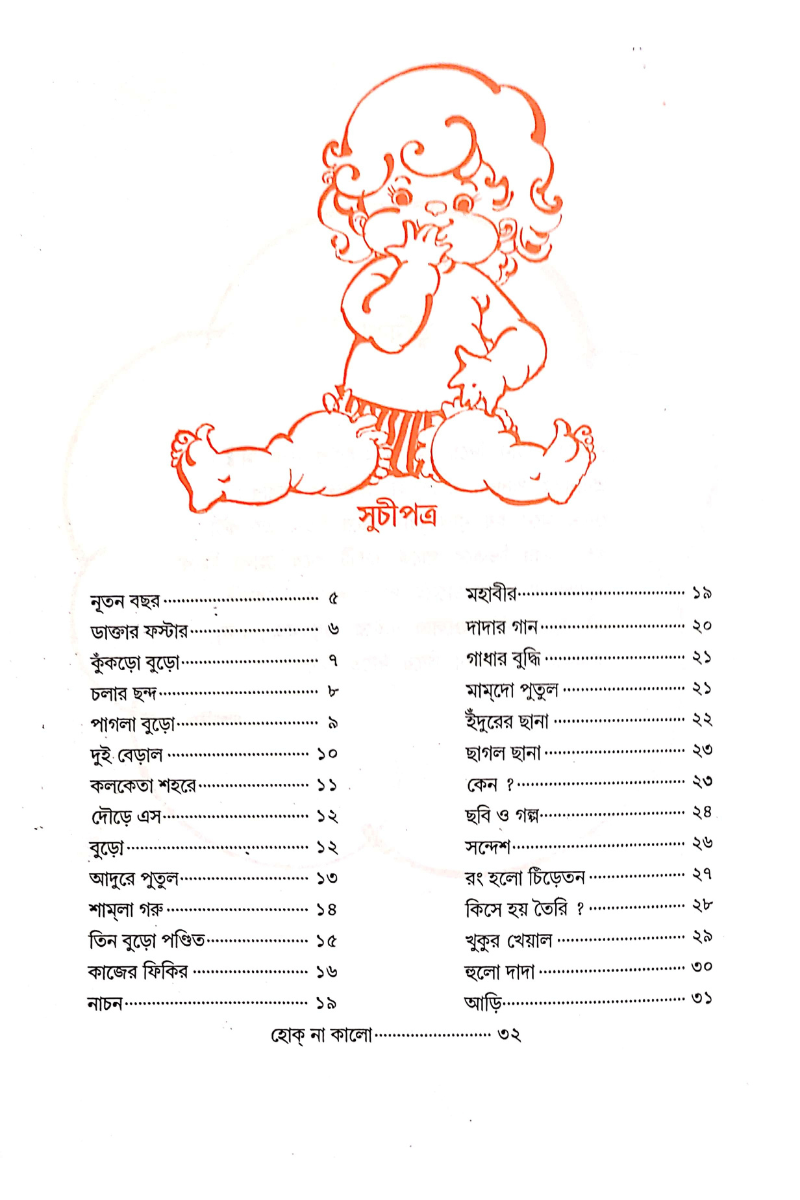 সূচীপত্র
নূতন বছর ................................ ৫
ডাক্তার ফস্টার ............................ ৬
কুঁকড়ো বুড়ো .............................. ৭
চলার ছন্দ ................................ ৮
পাগলা বুড়ো .............................. ৯
দুই বেড়াল ............................... ১০
কলকেতা শহরে .......................... ১১
দৌড়ে এস ................................ ১২
বুড়ো ..................................... ১২
আদুরে পুতুল ............................. ১৩
শাম্‌লা গরু ............................... ১৪
তিন বুড়ো পণ্ডিত ........................ ১৫
কাজের ফিকির ........................... ১৬
নাচন ..................................... ১৯
মহাবীর .................................. ১৯
দাদার গান ............................... ২০
গাধার বুদ্ধি .............................. ২১
মাম্‌দো পুতুল ............................ ২১
ইঁদুরের ছানা ............................. ২২
ছাগল ছানা .............................. ২৩
কেন ? ................................... ২৩
ছবি ও গল্প ............................... ২৪
সন্দেশ ................................... ২৬
রং হলো চিঁড়েতন ....................... ২৭
কিসে হয় তৈরি ? ....................... ২৮
খুকুর খেয়াল ............................. ২৯
হুলো দাদা ............................... ৩০
আড়ি ..................................... ৩১
হোক্ না কালো .......................... ৩২